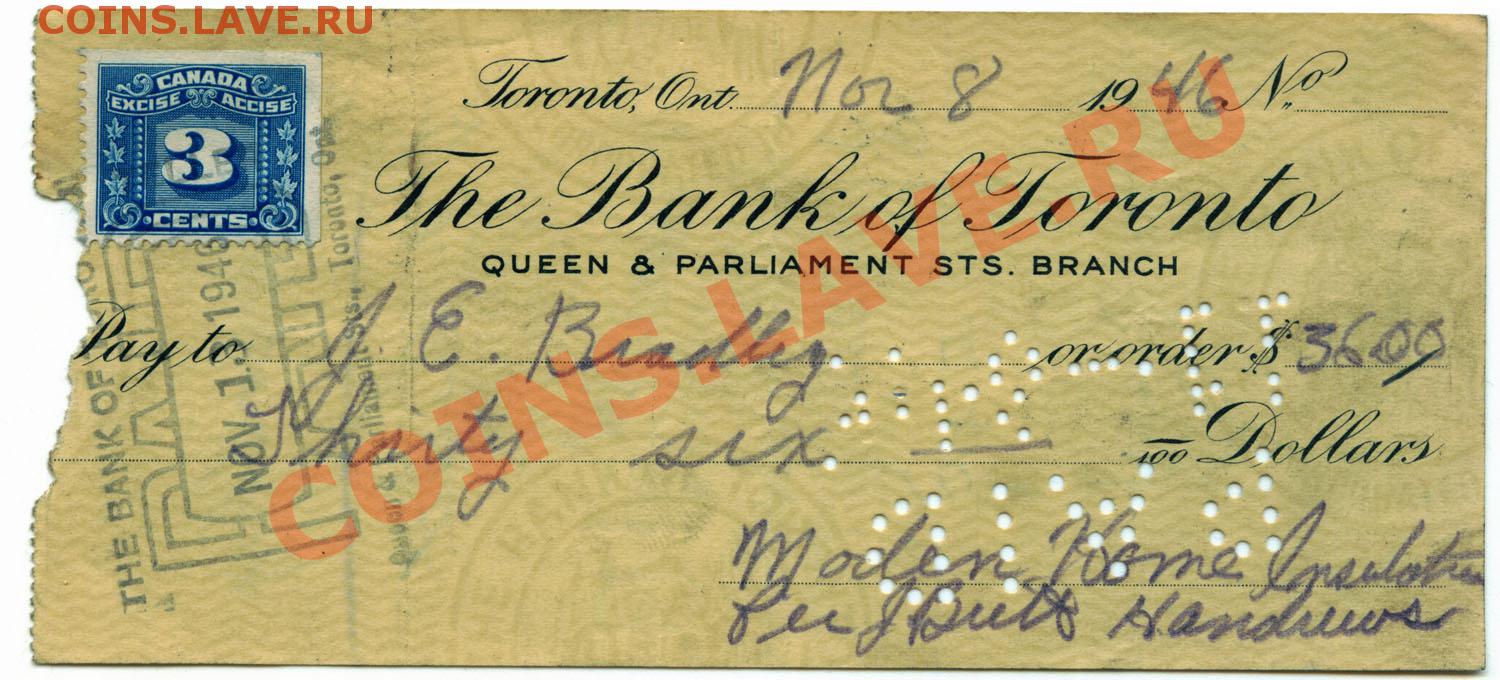 COINS.LAVE.RU
CANADA
EXCISE ACCISE
3
CENTS
Toronto, Ont. Nov 8 1946 No
The Bank of Toronto
QUEEN & PARLIAMENT STS. BRANCH
Pay to J E. Bradley or order $ 36.00
Thirty six — 100 Dollars
Modern Home Insulation
Per J Butt H Andrews
THE BANK OF TORONTO
PAID
NOV. 1946
Toronto, Ont
COINS.LAVE.RU